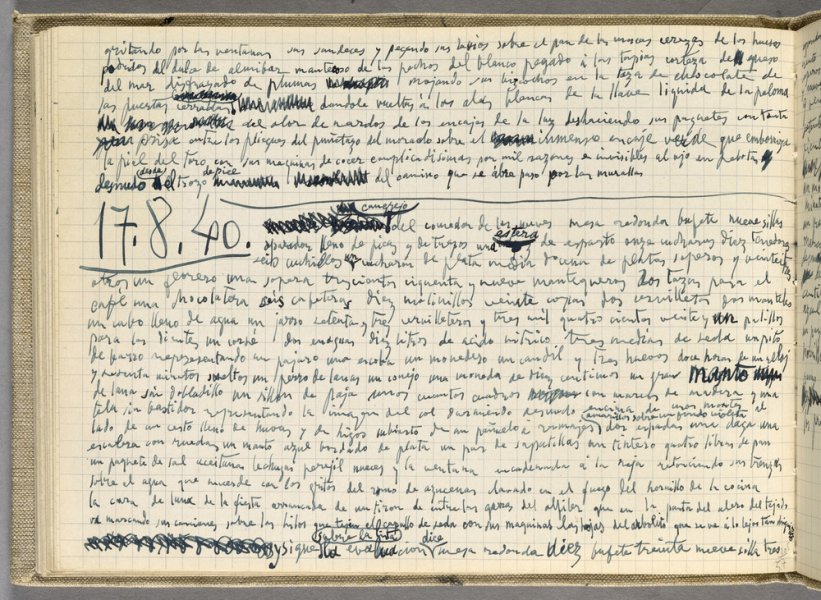 gritando por las ventanas sus sandeces y pegando sus labios sobre el pan de las moscas cerezas de los huesos
podridos del dulce de almibar mantecoso de los pechos del blanco pegado á las torpias corteza del queso
del mar disfrazado de plumas mojando sus bizcochos en la taza de chocolate de
las puertas cerradas dandole vueltas á las alas blancas de la llave liquida de la paloma
del olor de nardos de los encajes de la luz deshaciendo sus paquetes con tanta
prisa entre los pliegues del puñetazo del morado sobre el inmenso encaje verde que emboniga
la piel del toro con sus maquinas de coser complicadisimas por mil razones e invisibles al ojo
desnudo del trozo del camino que se abre paso por las murallas
17.8.40.
cangrejo
del comedor de las nueves mesa redonda bufete nueve sillas
aparador lleno de picas y de trozos una estera de esparto onze cucharas diez tenedores
seis cuchillos cucharon de plata media docena de platos soperos y veintiseis
otros un florero una sopera trescientos cincuenta y nueve mantequeras dos tazas para el
café una chocolatera seis cafeteras diez molinillos veinte copas dos servilletas dos manteles
un cubo lleno de agua un jarro setenta y tres servilleteros y tres mil quatro cientos veinte y un palillos
para los dientes un coche dos enaguas diez litros de acido nitrico tres medias de seda un pito
de barro representando un pajaro una escoba un monedero un candil y tres huevos doce horas de un reloj
y noventa minutos sueltos un perro de lanas un conejo una moneda de diez centimos un gran manto
de lana sin dobladillo un sillon de paja unos cuantos cuadros con marcos de madera y una
tela sin bastidor representando la imagen del sol durmiendo desnudo encima de unos montes amarillos sobre un fondo violeta al
lado de un cesto lleno de huevos y de higos cubierto de un pañuelo dos espadas una daga una
escalera con ruedas un manto azul bordado de plata un par de zapatillas un tintero quatro libras de pan
un paquete de sal aceitunas lechugas perejil nueces y la ventana encadenada á la reja retorciendo sus trenzas
sobre el agua que muerde con los gritos del ramo de azucenas clavado en el fuego del hornillo de la cocina
la cara de luna de la fiesta arrancada de un tiron de entre las garras del alfiler que en la punta del alero del tejado
va marcando sus camiones sobre los hilos que tejen el capullo de seda con sus maquinas las hojas del arbolito que se ve á lo lejos
sobre la lista dice
y sigue la evaluacion mesa redonda diez bufete treinta nueve sillas tres